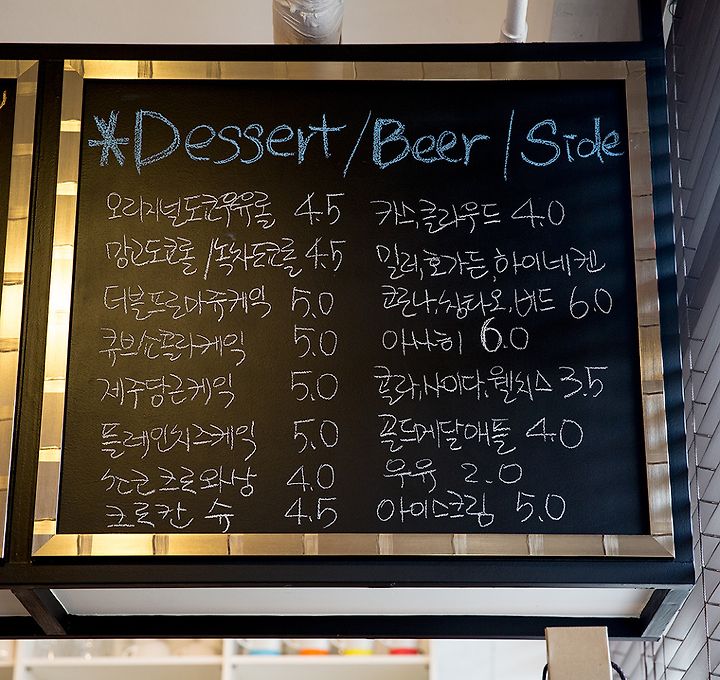 *Dessert/Beer/Side
오리지널도쿄우유롤 4.5
망고도쿄롤/녹차도쿄롤 4.5
더블프로마쥬케익 5.0
큐브쇼콜라케익 5.0
제주당근케익 5.0
플레인치즈케익 5.0
쇼콜크로와상 4.0
크로칸 슈 4.5
카스,클라우드 4.0
밀러,호가든,하이네켄
코로나,칭타오,버드 6.0
아사히 6.0
콜라,사이다,웰치스 3.5
골드메달애플 4.0
우유 2.0
아이스크림 5.0